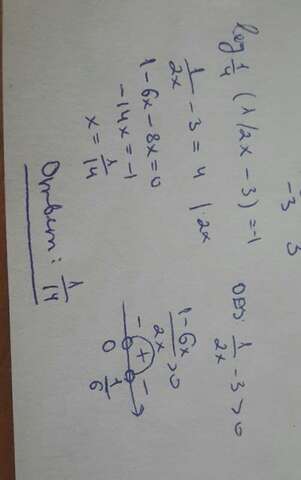 -3 3
log 1/4 (1/2x - 3) = -1
ОДЗ: 1/2x - 3 > 0
1/2x - 3 = 4 | ·2x
1 - 6x/2x > 0
1 - 6x - 8x = 0
-14x = -1
x = 1/14
- + -
0 1/6
Ответ: 1/14